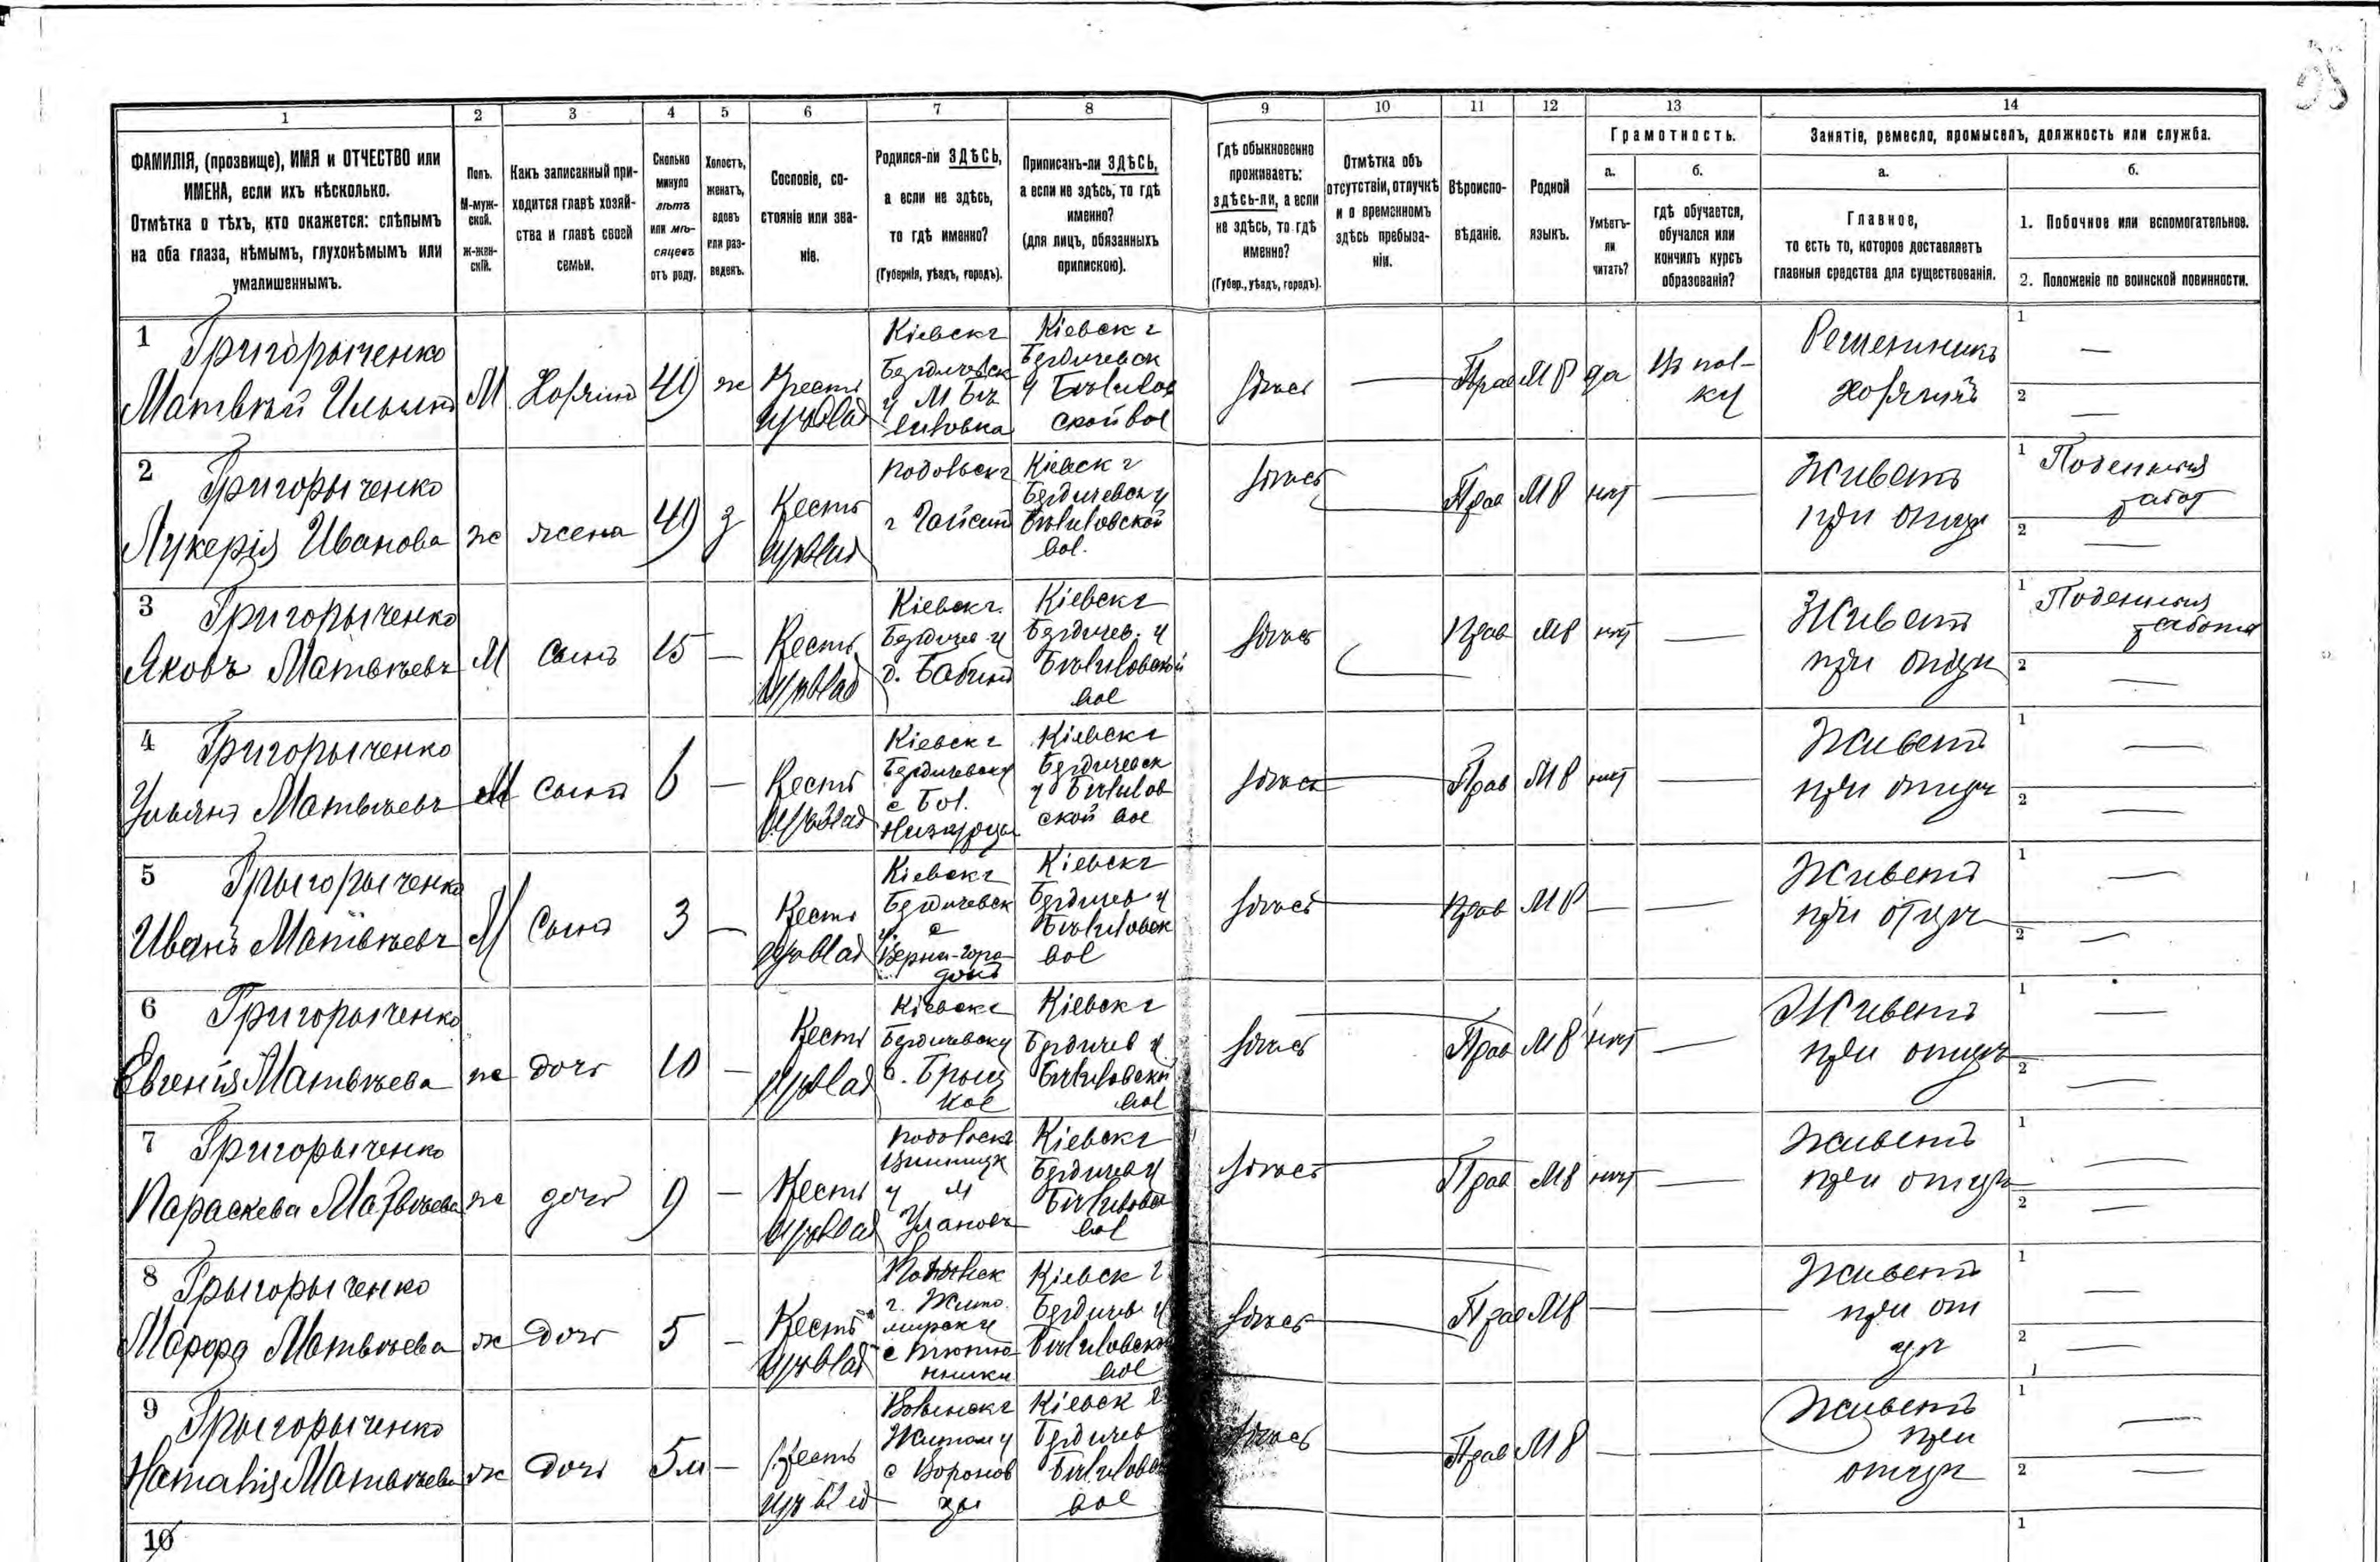 95
1
2
3
4
5
6
7
8
9
10
11
12
13
14
ФАМИЛІЯ, (прозвище), ИМЯ и ОТЧЕСТВО или
ИМЕНА, если ихъ нѣсколько.
Отмѣтка о тѣхъ, кто окажется: слѣпымъ
на оба глаза, нѣмымъ, глухонѣмымъ или
умалишеннымъ.
Полъ.
М-муж-
ской.
Ж-жен-
скій.
Какъ записанный при-
ходится главѣ хозяй-
ства и главѣ своей
семьи.
Сколько
минуло
лѣтъ
или мѣ-
сяцевъ
отъ роду.
Холостъ,
женатъ,
вдовъ
или раз-
веденъ.
Сословіе, со-
стояніе или зва-
ніе.
Родился-ли ЗДѢСЬ,
а если не здѣсь,
то гдѣ именно?
(Губернія, уѣздъ, городъ).
Приписанъ-ли ЗДѢСЬ,
а если не здѣсь, то гдѣ
именно?
(для лицъ, обязанныхъ
припискою).
Гдѣ обыкновенно
проживаетъ:
здѣсь-ли, а если
не здѣсь, то гдѣ
именно?
(Губер., уѣздъ, городъ).
Отмѣтка объ
отсутствіи, отлучкѣ
и о временномъ
здѣсь пребыва-
ніи.
Вѣроиспо-
вѣданіе.
Родной
языкъ.
Грамотность.
а.
Умѣетъ-
ли
читать?
б.
гдѣ обучается,
обучался или
кончилъ курсъ
образованія?
Занятіе, ремесло, промыселъ, должность или служба.
а.
Главное,
то есть то, которое доставляетъ
главныя средства для существованія.
б.
1. Побочное или вспомогательное.
2. Положеніе по воинской повинности.
1
Григорыченко
Матвѣй Ильинъ
М
ж
Кіевск г
Бердичевск
у М Бѣ
лиловка
Кіевск г
Бердичевск
у Бѣлилов
ской вол
здѣсь
Прав
М Р
да
Въ пол-
ку
1
2
2
Григорыченко
Лукерія Иванова
ж
жена
з
Подольск г
г Гайсин
Кіевск г
Бердичевск у
Бѣлиловской
вол.
здѣсь
Прав
М Р
нѣт
Живетъ
1
Поденная
работ
2
3
Григорыченко
Яковъ Матвѣевъ
М
сынъ
15
Крестъ
Кіевск г.
Бердичев у
Кіевск г
Бердичев. у
Бѣлиловской
вол
здѣсь
Прав
М Р
нѣт
Живетъ
1
Поденная
работа
2
4
Григорыченко
Ульянъ Матвѣевъ
М
сынъ
6
Крестъ
Кіевск г
Бердичевск у
с Бол.
Низгурцы
Кіевск г
Бердичевск
у Бѣлилов
ской вол
здѣсь
Прав
М Р
нѣт
Живетъ
1
2
5
Грыгорыченко
Иванъ Матвѣевъ
М
Сынъ
3
Крест
Кіевск г
Бердичевск
у. с
Верни-горо-
докъ
Кіевск г
Бердичев у
Бѣлиловск
вол
здѣсь
Прав
М Р
Живетъ
при отцѣ
1
2
6
Григорыченко
Евгенія Матвѣева
ж
дочь
10
Крестъ
Кіевск г
Бердичевск у
Кіевск г
Бердичев у
Бѣлиловской
вол
здѣсь
Прав
М Р
нѣт
Живетъ
при отцѣ
1
2
7
Григорыченко
Параскева Матвѣева
ж
дочь
9
Крестъ
Подольск г
Винницк
у м
Улановъ
Кіевск г
Бердичев у
Бѣлиловск
вол
здѣсь
Прав
М Р
нѣт
Живетъ
при отцѣ
1
2
8
Грыгорыченко
Марфа Матвѣева
ж
дочь
5
Крестъ
г. Жито
мирск у
Кіевск г
Бердичев у
Бѣлиловской
вол
здѣсь
Прав
М Р
Живетъ
при от
цѣ
1
2
9
Грыгорыченко
Наталія Матвѣева
ж
дочь
5 м
Крестъ
Волынск г
Житом у
с Воронов
цы
Кіевск г
Бердичев
Бѣлиловск
вол
здѣсь
Прав
М Р
Живетъ
при
отцѣ
1
2
10
1